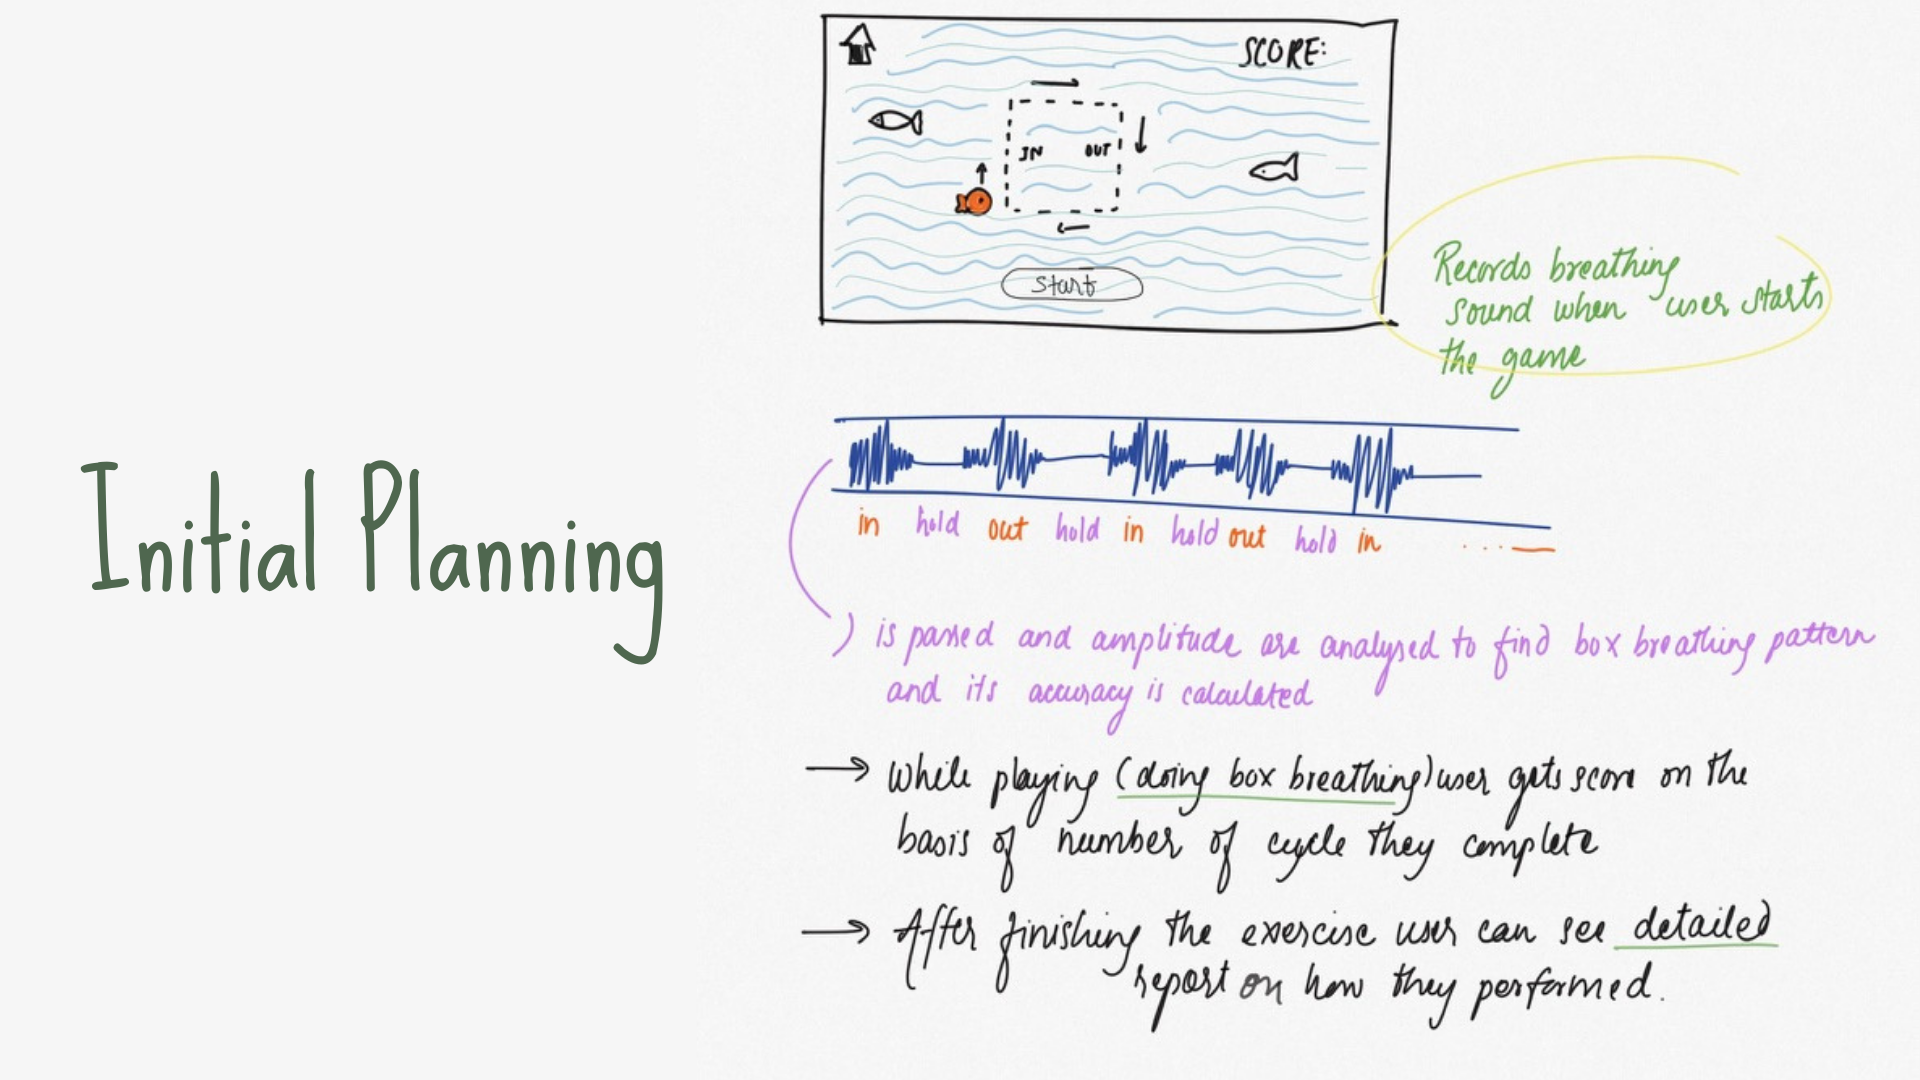 Initial Planning
SCORE:
IN OUT
Start
Records breathing
sound when user starts
the game
in hold out hold in hold out hold in ....
) is parsed and amplitude are analysed to find box breathing pattern
and its accuracy is calculated
→ While playing (doing box breathing) user gets score on the
basis of number of cycle they complete
→ After finishing the exercise user can see detailed
report on how they performed.